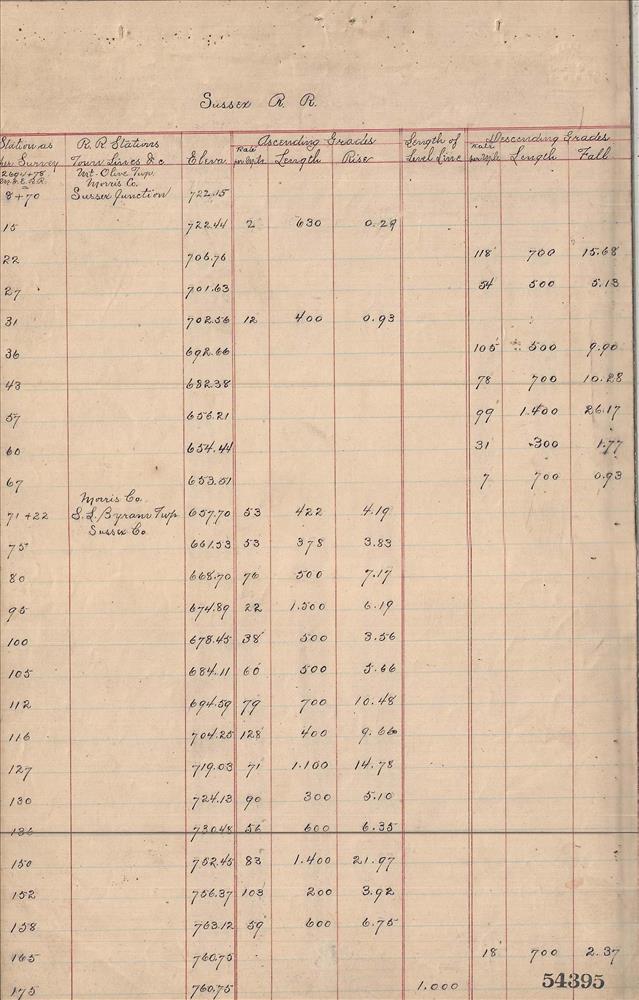 Sussex R. R.
Station as R. R. Stations Eleva. Ascending Grades Length of Descending Grades
per Survey Town Lines &c Rate per Mile Length Rise Level Line Rate per Mile Length Fall
2694+78 Mt. Olive Twp.
M. & E. R. R. Morris Co.
8+70 Sussex Junction 722.15
15 722.44 2 630 0.29
22 706.76 118 700 15.68
27 701.63 54 500 5.13
31 702.56 12 400 0.93
36 692.66 105 500 9.90
43 682.38 78 700 10.28
57 656.21 99 1.400 26.17
60 654.44 31 300 1.77
67 653.51 7 700 0.93
Morris Co.
71+22 S. L. Byram Twp 657.70 53 422 4.19
Sussex Co.
75 661.53 53 378 3.83
80 668.70 76 500 7.17
95 674.89 22 1.500 6.19
100 678.45 38 500 3.56
105 684.11 60 500 5.66
112 694.59 79 700 10.48
116 704.25 128 400 9.66
127 719.03 71 1.100 14.78
130 724.13 90 300 5.10
136 730.48 56 600 6.35
150 752.45 83 1.400 21.97
152 756.37 103 200 3.92
158 763.12 59 600 6.75
165 760.75 18 700 2.37
54395
175 760.75 1.000